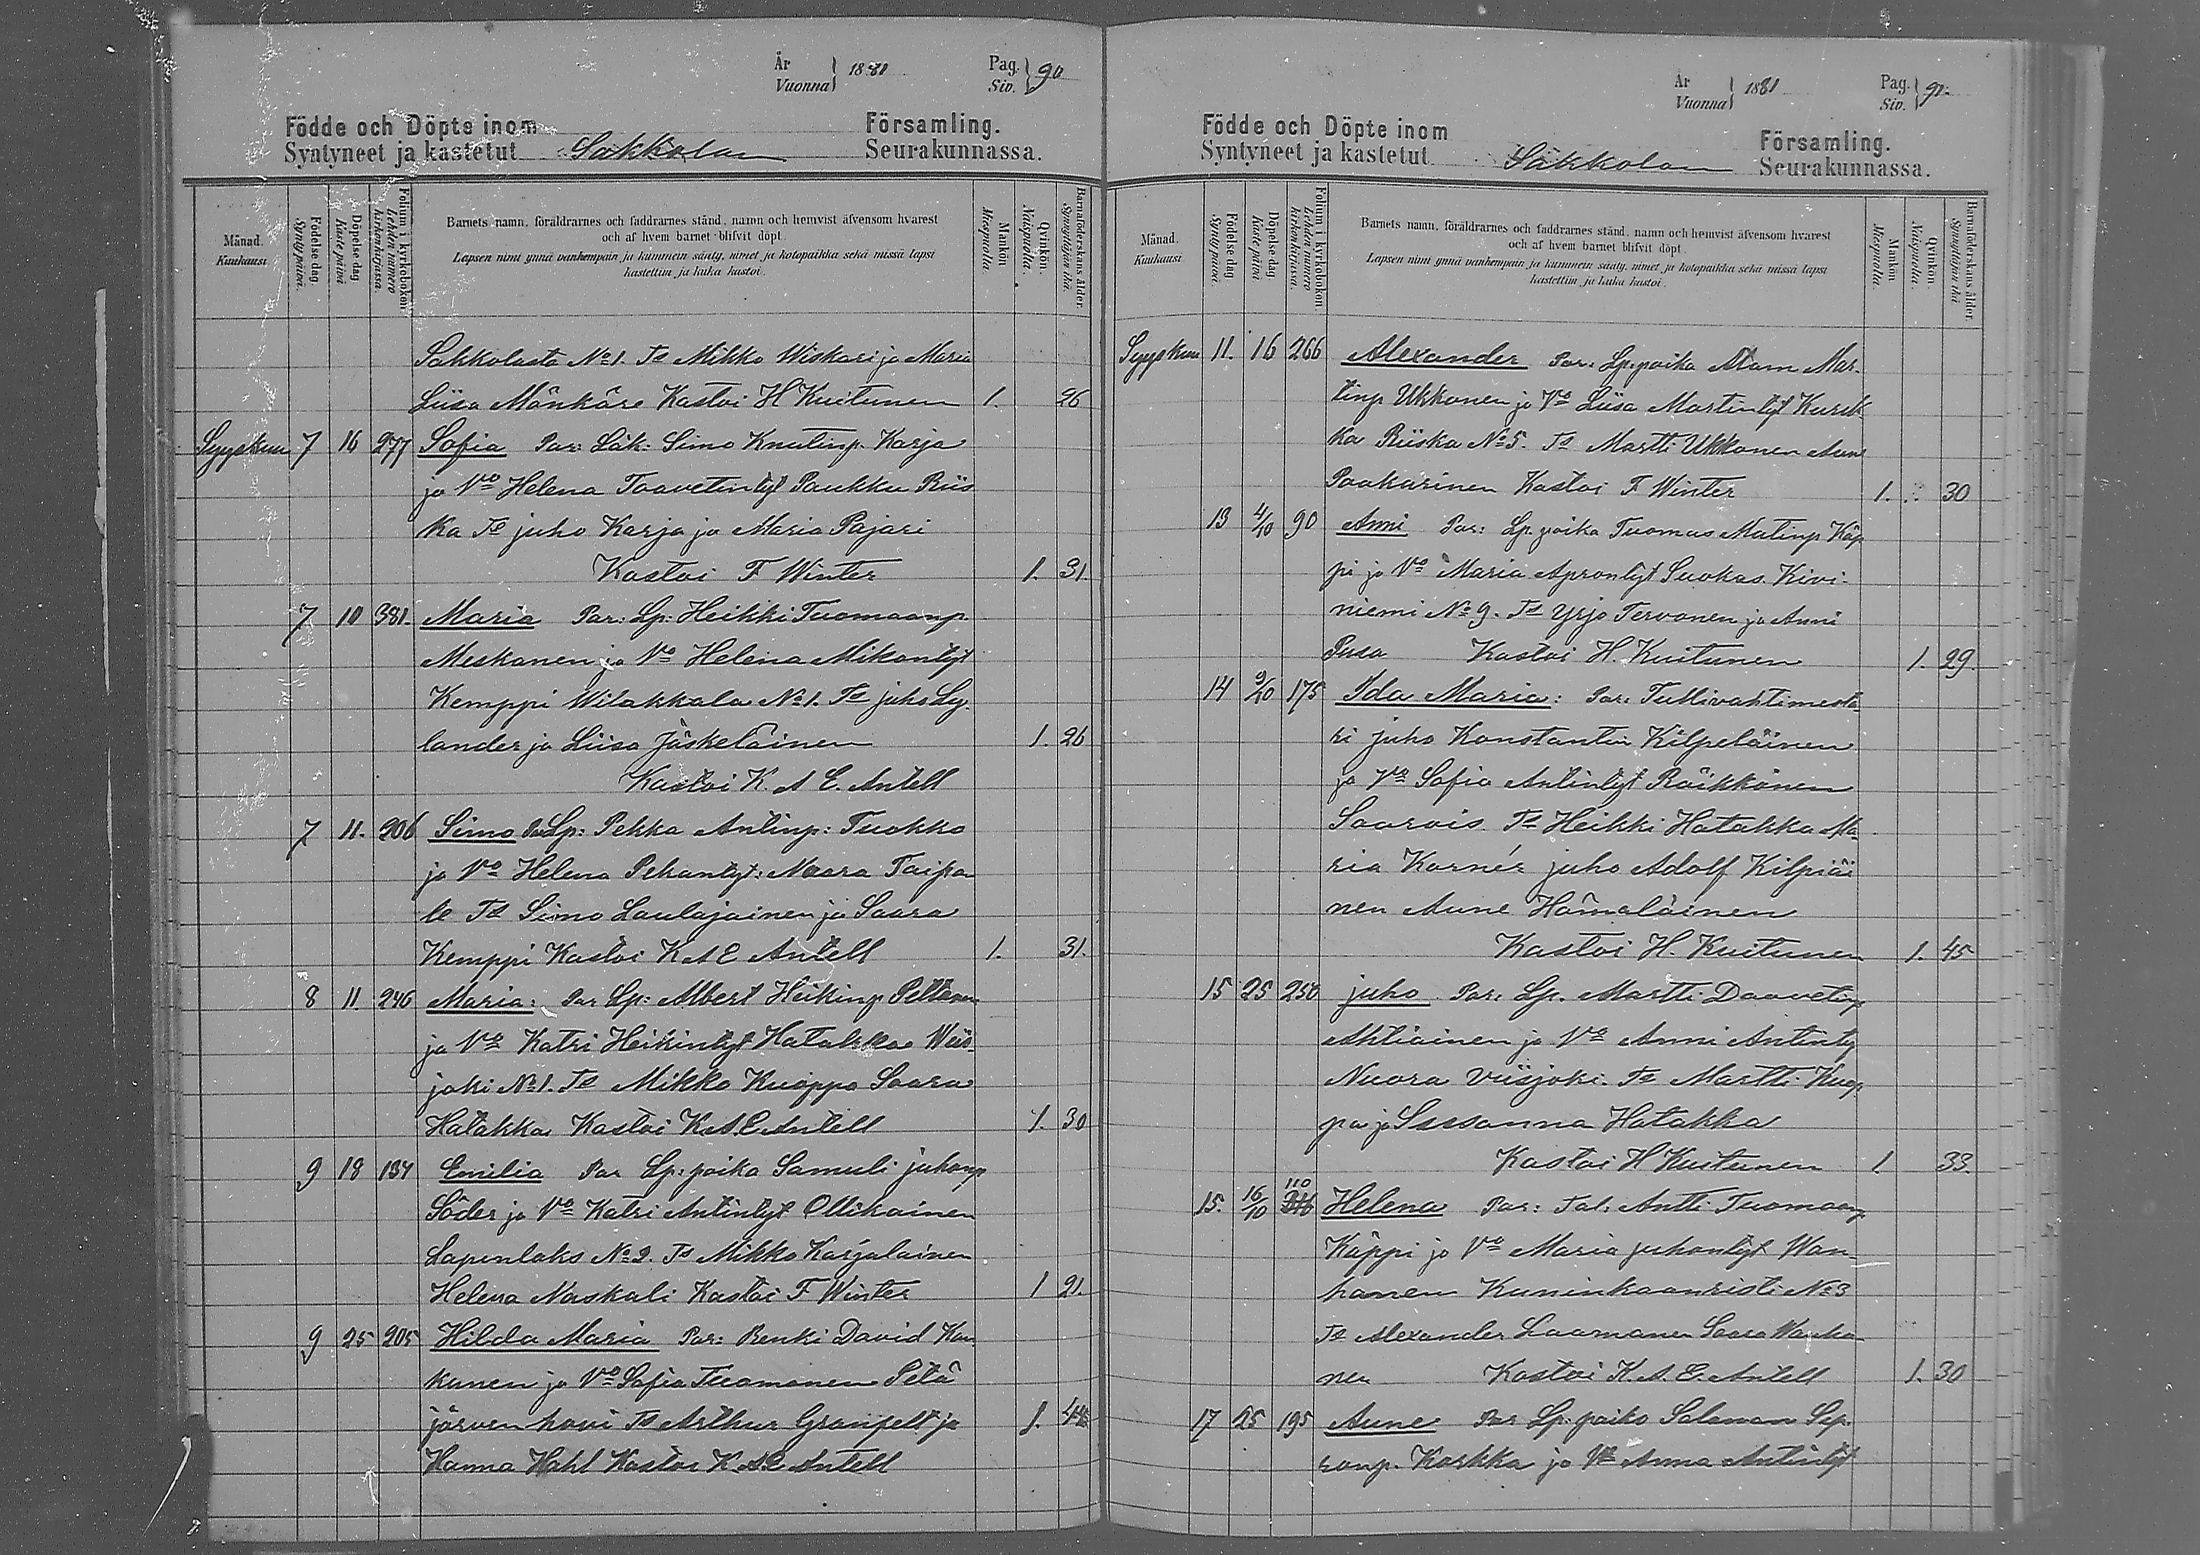 År
Vuonna } 1881 Pag.
Siv. } 90
Födde och Döpte inom Församling.
Syntyneet ja kastetut Säkkolan Seurakunnassa.
Månad.
Kuukausi
Födelse dag.
Syntypäivä.
Döpelse dag
Kaste päivä
Folium i kyrkoboken.
Lehden numero kirkonkirjassa.
Barnets namn, föräldrarnes och faddrarnes stånd, namn och hemvist äfvensom hvarest
och af hvem barnet blifvit döpt.
Lapsen nimi ynnä vanhempain ja kummein sääty, nimet ja kotopaikka sekä missä lapsi
kastettiin ja kuka kastoi.
Mankön
Miespuolia
Qvinkön.
Naispuolia.
Barnaföderskans ålder.
Synnyttäjän ikä.
Sakkolasta No 1. Ts Mikko Wiskari ja Maria
Liisa Mönkäre Kastoi H Kuitunen 1. 26
Syyskuu 7 16 277 Sofia Par: Säk: Simo Knutinp. Karja
ja Vo Helena Taavetintyt Paukku Riis
ka Ts juho Karja ja Maria Pajari
Kastoi F Winter 1. 31.
7 10 381. Maria Par: Lp: Heikki Tuomaanp.
Meskanen ja Vo Helena Mikontyt
Kemppi Wilakkala No 1. Ts juho Sy
lander ja Liisa Jäskeläinen 1. 26
Kastoi K. A E. Antell
7 11. 206 Simo Par Lp: Pekka Antinp: Tuokko
ja Vo Helena Pekantyt: Naara Taipa
le Ts Simo Laulajainen ja Saara
Kemppi Kastoi K A E Antell 1. 31.
8 11. 246 Maria: Par Lp: Albert Heikinp Peltonen
ja Vo Katri Heikintyt Hatakka Wiis
joki No 1. Ts Mikko Kuoppa Saara
Hatakka Kastoi K. A. E Antell 1. 30
9 18 134 Emilia Par Lp: poika Samuli juhonp
Söder ja Vo Katri Antintyt Ollikainen
Lapenlaks No 2. Ts Mikko Karjalainen
Helena Naskali Kastoi F Winter 1 21.
9 25 205 Hilda Maria Par: Renki David Kau
kunen ja Vo Sofia Tuomanen Petä
järven hovi Ts Arthur Granfelt ja 1. 44
Hanna Hahl Kastoi K A E Antell
År
Vuonna } 1881 Pag.
Siv. } 91.
Födde och Döpte inom Församling.
Syntyneet ja kastetut Säkkolan Seurakunnassa.
Månad.
Kuukausi
Födelse dag.
Syntypäivä.
Döpelse dag.
Kaste päivä
Folium i kyrkoboken.
Lehden numero kirkonkirjassa.
Barnets namn, föräldrarnes och faddrarnes stånd, namn och hemvist äfvensom hvarest
och af hvem barnet blifvit döpt.
Lapsen nimi ynnä vanhempain ja kummein sääty, nimet ja kotopaikka sekä missä lapsi
kastettiin ja kuka kastoi.
Mankön
Miespuolia.
Qvinkön.
Naispuolia.
Barnaföderskans ålder.
Synnyttäjän ikä
Syyskuu 11. 16 266 Alexander Par: Lp: poika Atam Mar-
tinp Ukkonen ja Vo Liisa Martintyt Kurik
ka Riiska No 5. Ts Martti Ukkonen Anni
Paakarinen Kastoi F Winter 1. 30
13 4/10 90 Anni Par: Lp. poika Tuomas Matinp Käp
pi ja Vo Maria Aprontyt Suokas Kivi-
niemi No 9. Ts Yrjö Tervonen ja Anni
Pusa Kastoi H. Kuitunen 1. 29.
14 9/10 175 Ida Maria: Par: Tullivahtimesta
ri juho Konstantin Kilpeläinen
ja Vo Sofia Antintyt Räikkönen
Saarois Ts Heikki Hatakka Ma
ria Karnér juho Adolf Kilpiäi
nen Aune Hämäläinen
Kastoi H. Kuitunen 1. 45
15 25 250 juho Par: Lp. Martti Daavetinp
Ahtiainen ja Vo Anni Antinty
Nuora Viisjoki. Ts Martti Kuop
pa ja Sussanna Hatakka
Kastoi H Kuitunen 1. 33.
15. 16/10 110 Helena Par: Tal: Antti Tuomaanp
Käppi ja Vo Maria juhontyt Wan
hanen Kuninkaanristi No 3
Ts Alexander Laamanen Saara Wanha
nen Kastoi K. A. E. Antell 1. 30
17 25 195 Aune Par Lp. poika Salaman Sip-
ronp. Karkka ja Vo Anna Antintyt